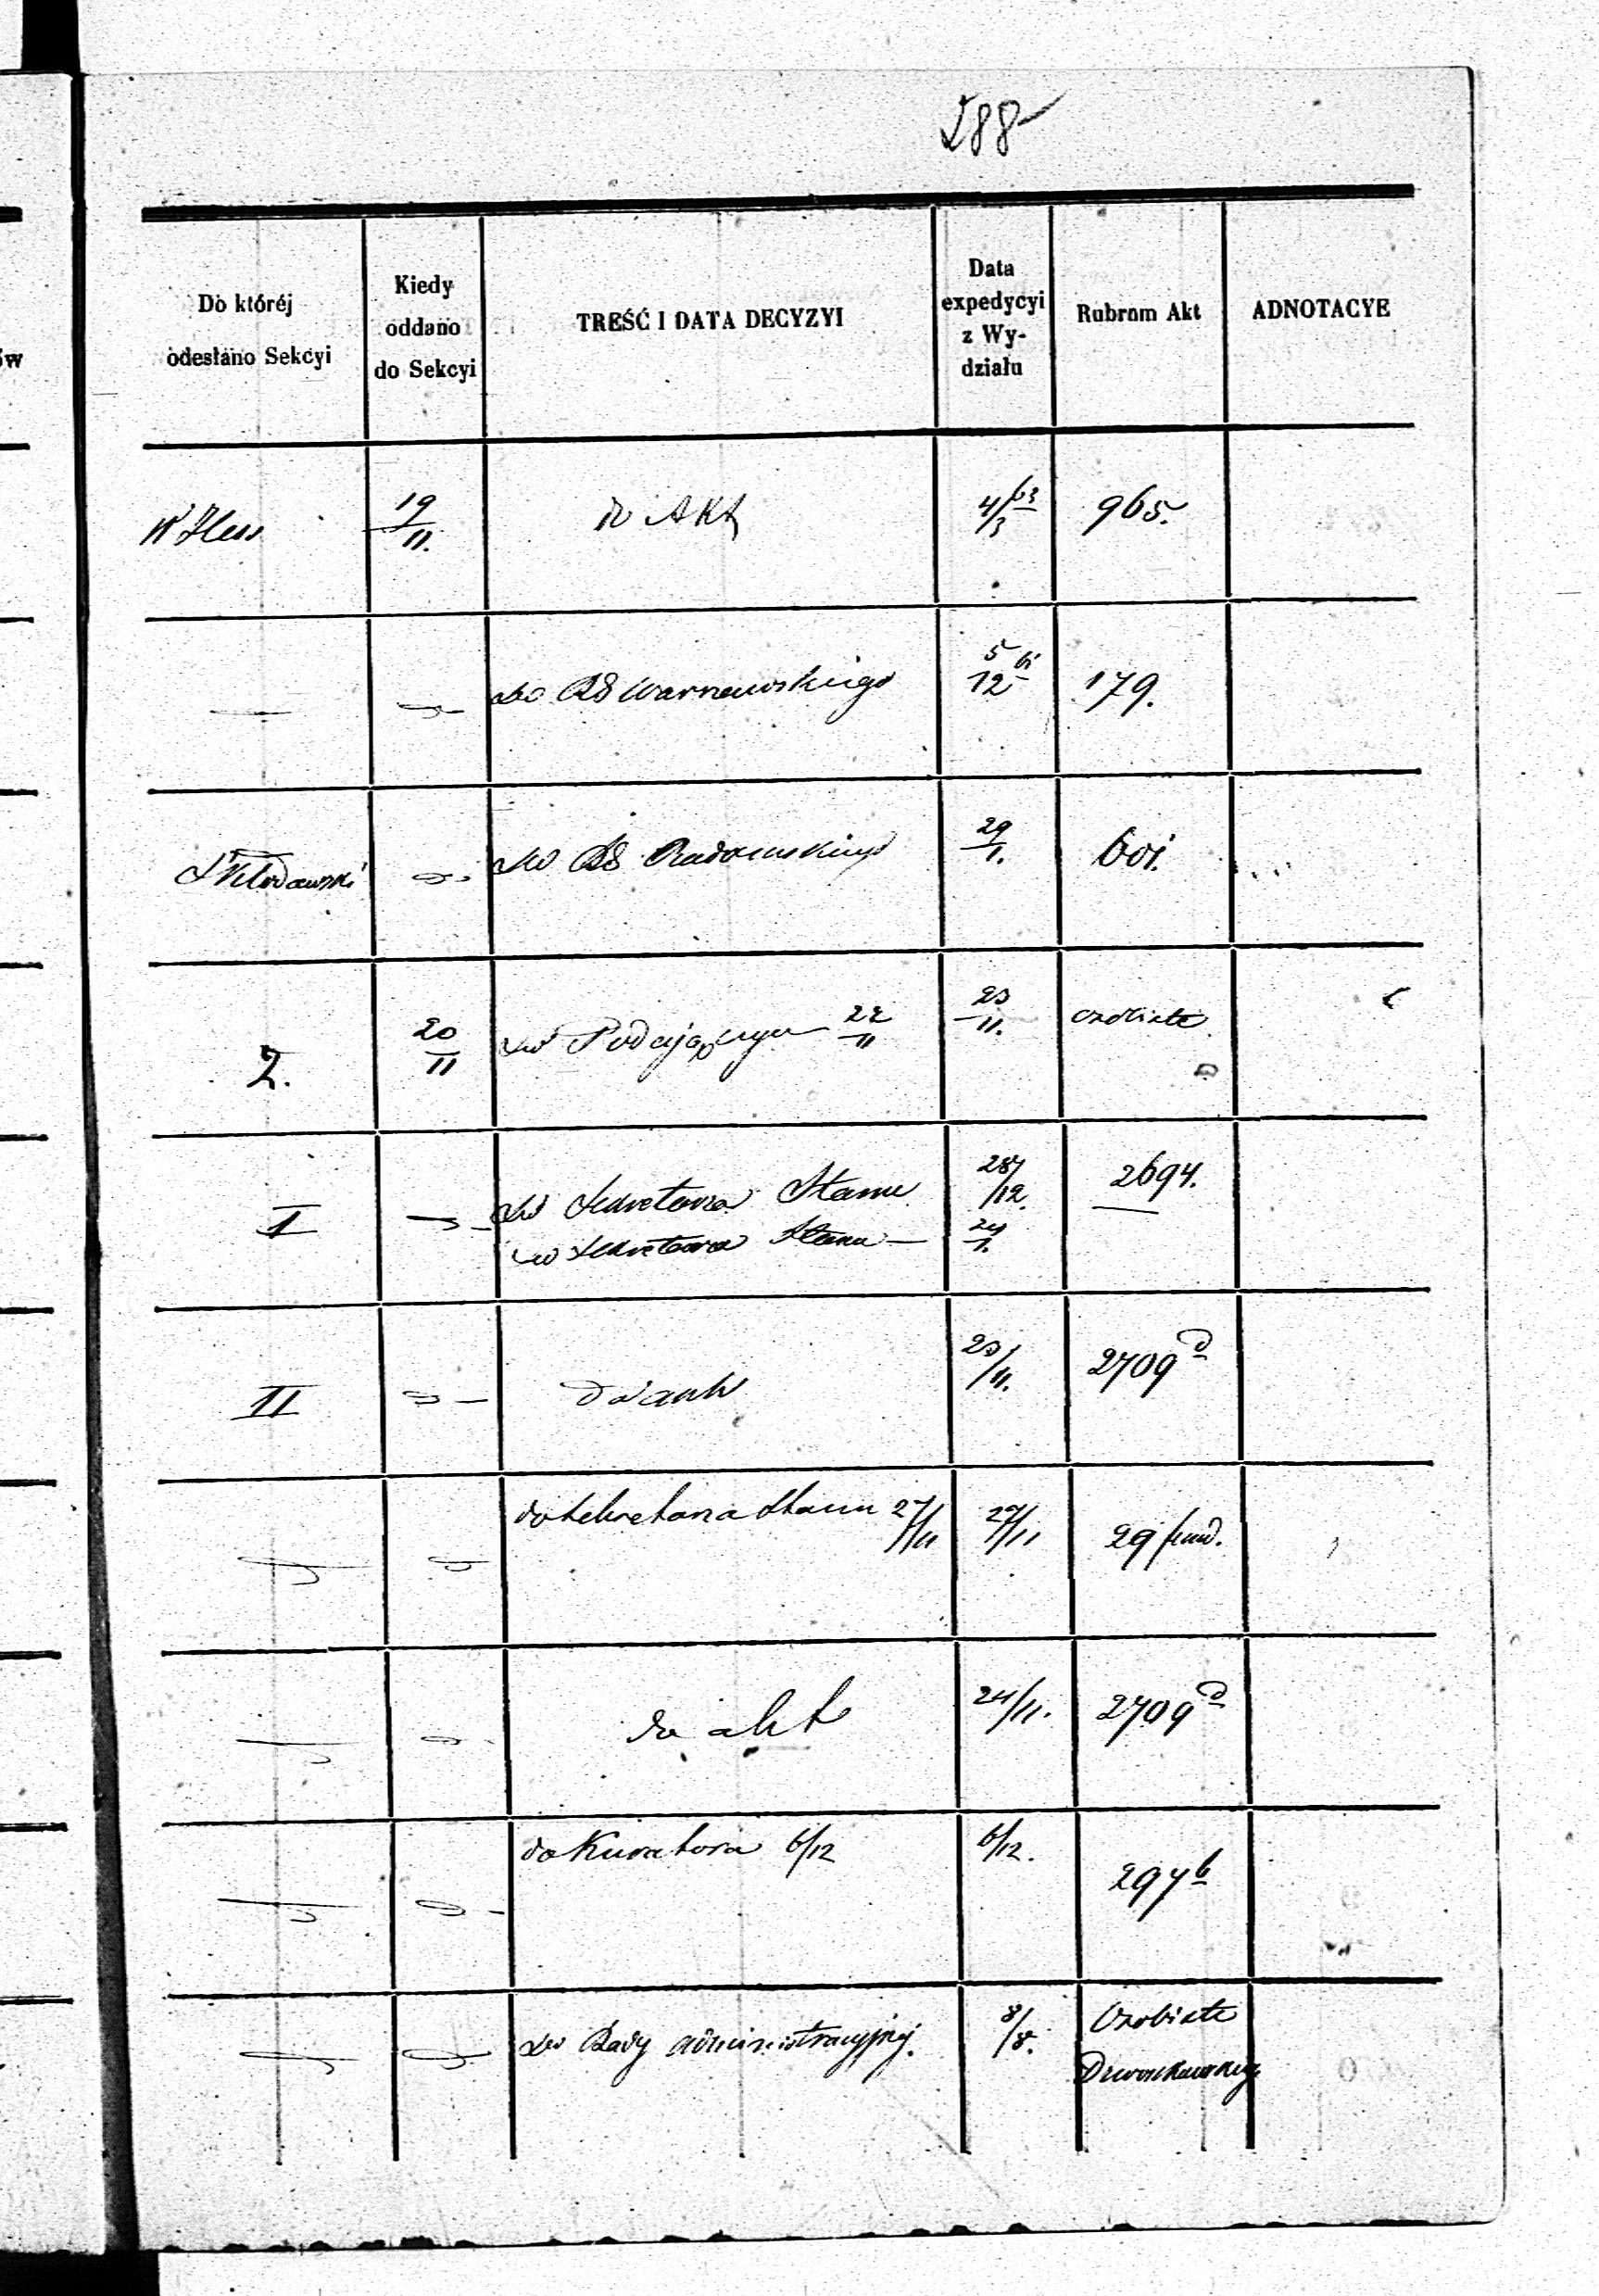 288
Do któréj
odesłano Sekcyi
Kiedy
oddano
do Sekcyi
TREŚĆ I DATA DECYZYI
Data
expedycyi
z Wy-
działu
Rubrum Akt
ADNOTACYE
W Hess
19/11.
do Akt
4/3 63
965.
do RG Warszawskiego
5/12
179.
do RG Radomskiego
29/1.
601.
2.
20/11
do Podającego 22/11
23/11.
osobiste
I
do Sekretarza Stanu
28/12.
2694.
do Sekretarza Stanu
24/1.
II
do akt
23/11.
2709 d
do Sekretarza Stanu 27/11
27/11
29 fund.
do akt
24/11.
2709 d
do Kuratora 6/12
6/12.
294 b
do Rady Administracyjnej.
8/8.
Osobiste